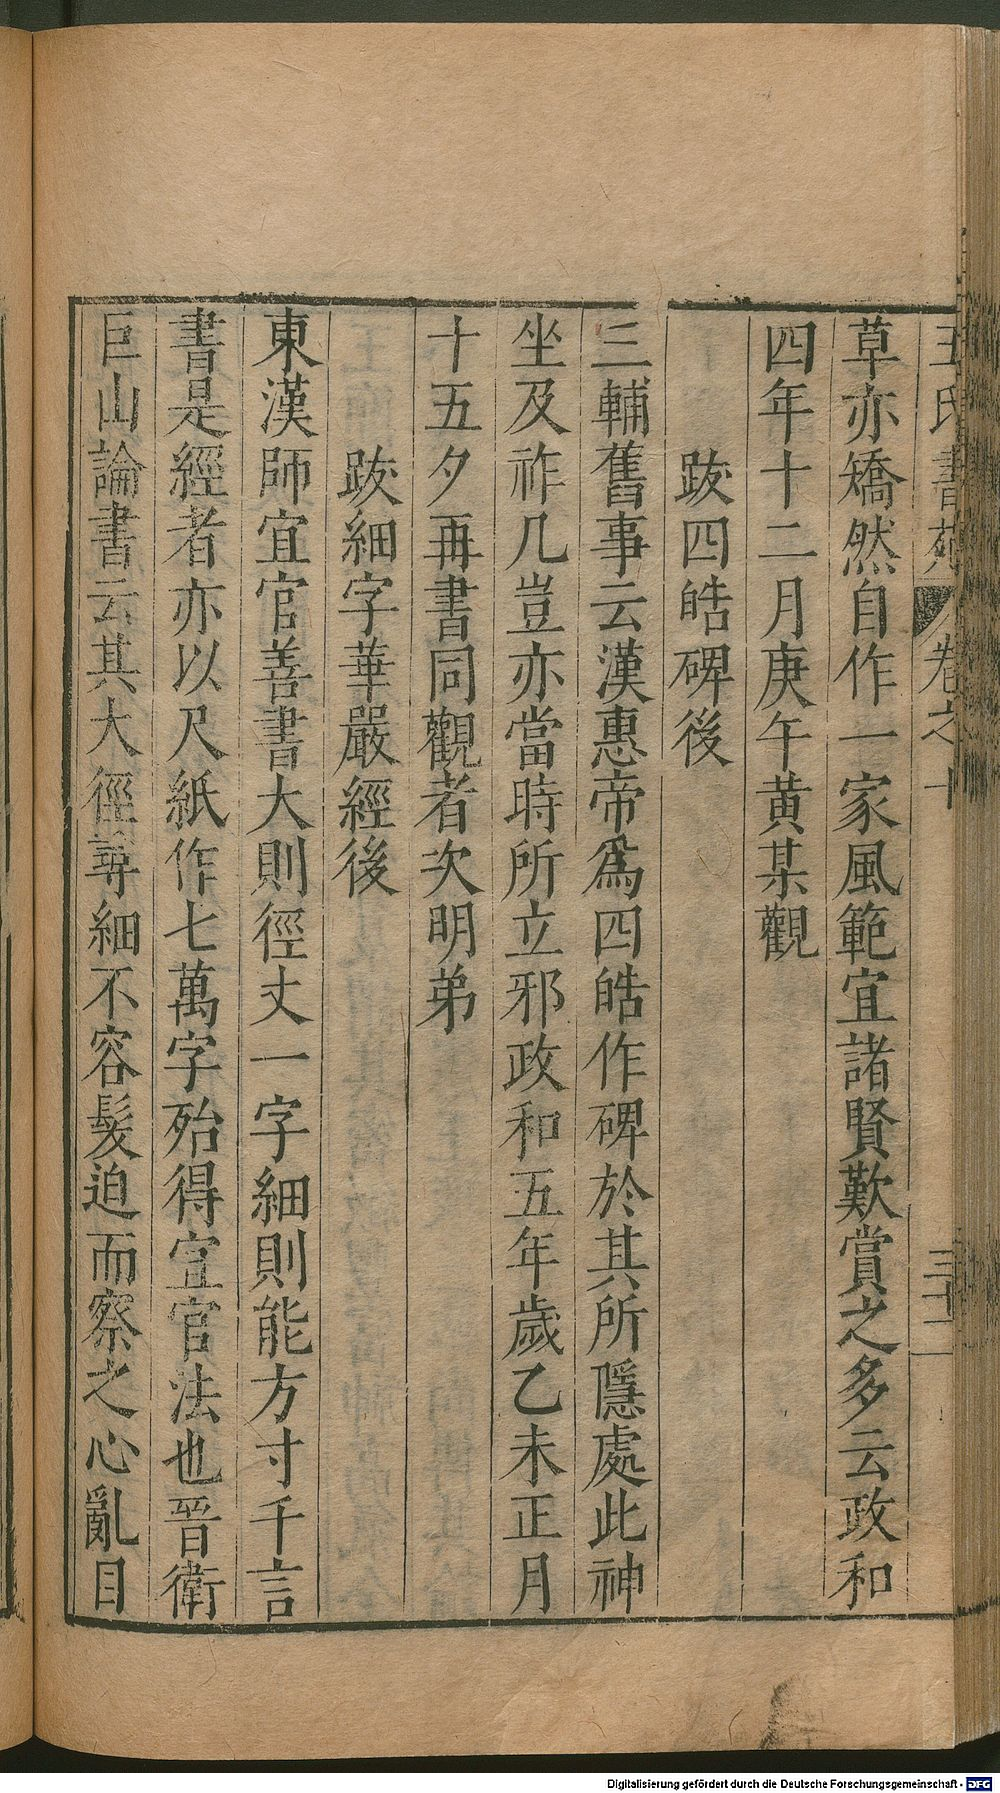 王氏書苑 卷之十 三十一
草亦矯然自作一家風範宜諸賢歎賞之多云政和
四年十二月庚午黃某觀
跋四皓碑後
三輔舊事云漢惠帝為四皓作碑於其所隱處此神
坐及祚几豈亦當時所立邪政和五年歲乙未正月
十五夕再書同觀者次明弟
跋細字華嚴經後
東漢師宜官善書大則徑丈一字細則能方寸千言
書是經者亦以尺紙作七萬字殆得宜官法也晉衛
巨山論書云其大徑尋細不容髮迫而察之心亂目
Digitalisierung gefördert durch die Deutsche Forschungsgemeinschaft - DFG